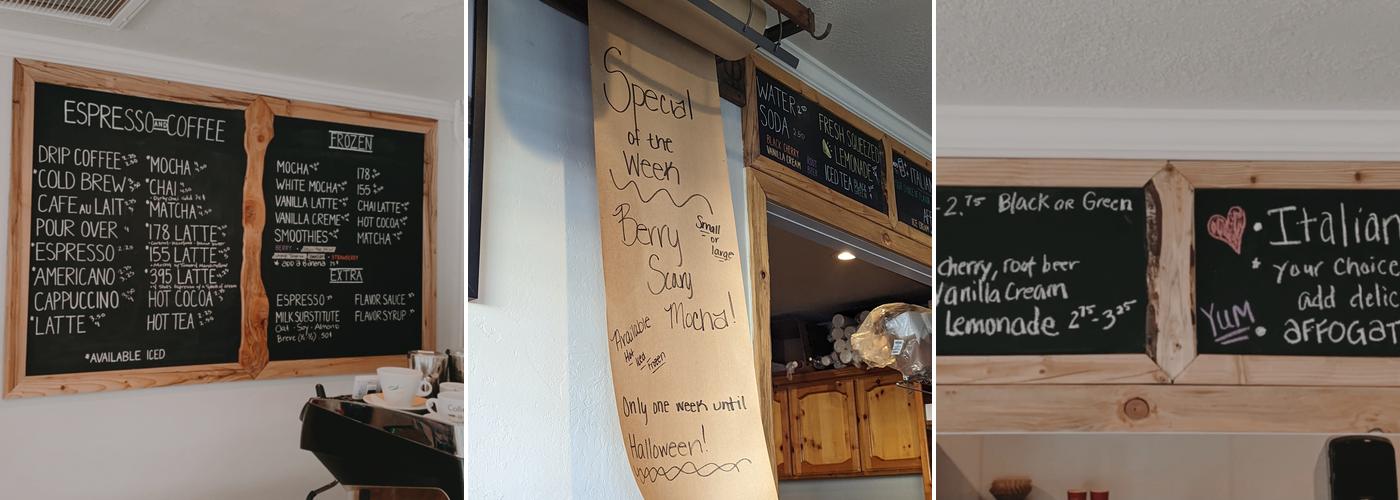 ESPRESSO AND COFFEE
DRIP COFFEE
*COLD BREW
CAFE AU LAIT
POUR OVER 4
*ESPRESSO 2.25
*AMERICANO
CAPPUCCINO
*LATTE
*MOCHA
*CHAI
*MATCHA
*178 LATTE
*155 LATTE
*395 LATTE
HOT COCOA
HOT TEA
*AVAILABLE ICED
FROZEN
MOCHA
WHITE MOCHA
VANILLA LATTE
VANILLA CREME
SMOOTHIES
BERRY
STRAWBERRY
* add a banana
178
155
CHAI LATTE
HOT COCOA
MATCHA
EXTRA
ESPRESSO
MILK SUBSTITUTE
Oat - Soy - Almond
Breve (½ ½) .50¢
FLAVOR SAUCE
FLAVOR SYRUP
Special
of the
Week
Berry
Scary
Mocha!
Small
or
large
Available
Hot Iced Frozen
Only one week until
Halloween!
WATER
SODA 2.50
BLACK CHERRY
VANILLA CREAM
ROOT BEER
FRESH SQUEEZED
LEMONADE
ICED TEA BLACK
GREEN
ITALIAN
ICE CREAM
2.75 Black or Green
cherry, root beer
Vanilla Cream
Lemonade 2.75-3.25
• Italian
your choice
add delic
• AFFOGAT
YUM